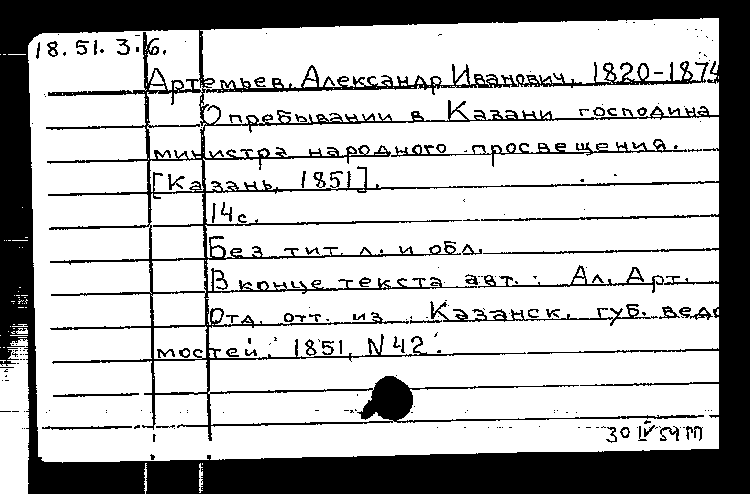 18.51.3.6.
Артемьев, Александр Иванович, 1820-1874
О пребывании в Казани господина
министра народного просвещения.
[Казань, 1851].
14с.
Без тит. л. и обл.
В конце текста авт.: Ал. Арт.
Отд. отт. из: Казанск. губ. ведо
мостей. 1851, N 42.
30 IV 59